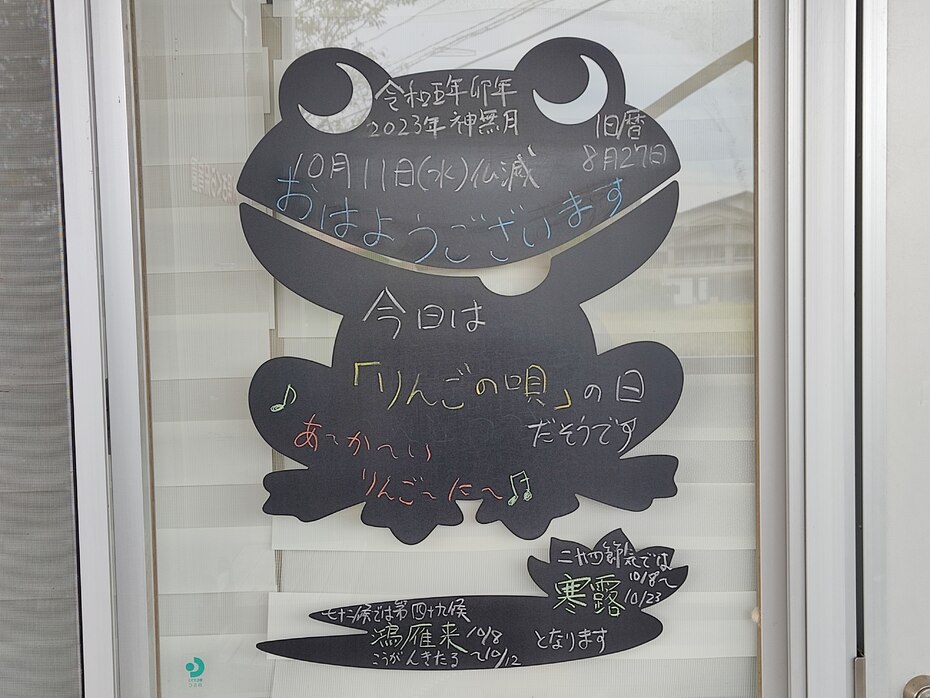 令和五年卯年
2023年神無月
旧暦
8月27日
10月11日(水)仏滅
おはようございます
今日は
「りんごの唄」の日
だそうです
♪
あ〜か〜い
りんご〜に〜♫
二十四節気では
寒露 10/8〜
10/23
七十二候では第四十九候
鴻雁来 10/8
こうがんきたる 〜10/12
となります